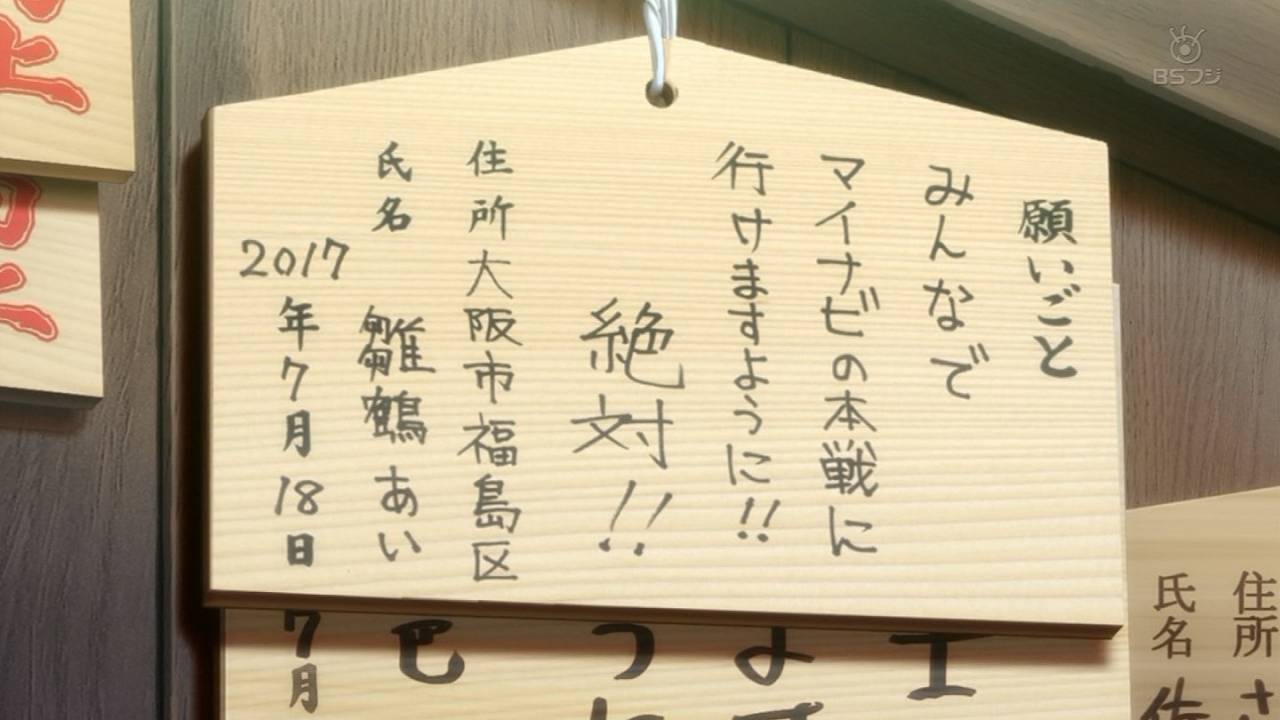 願いごと
みんなで
マイナビの本戦に
行けますように!!
絶対!!
住所大阪市福島区
氏名 雛鶴あい
2017年7月18日
7月
住所
氏名
BSフジ